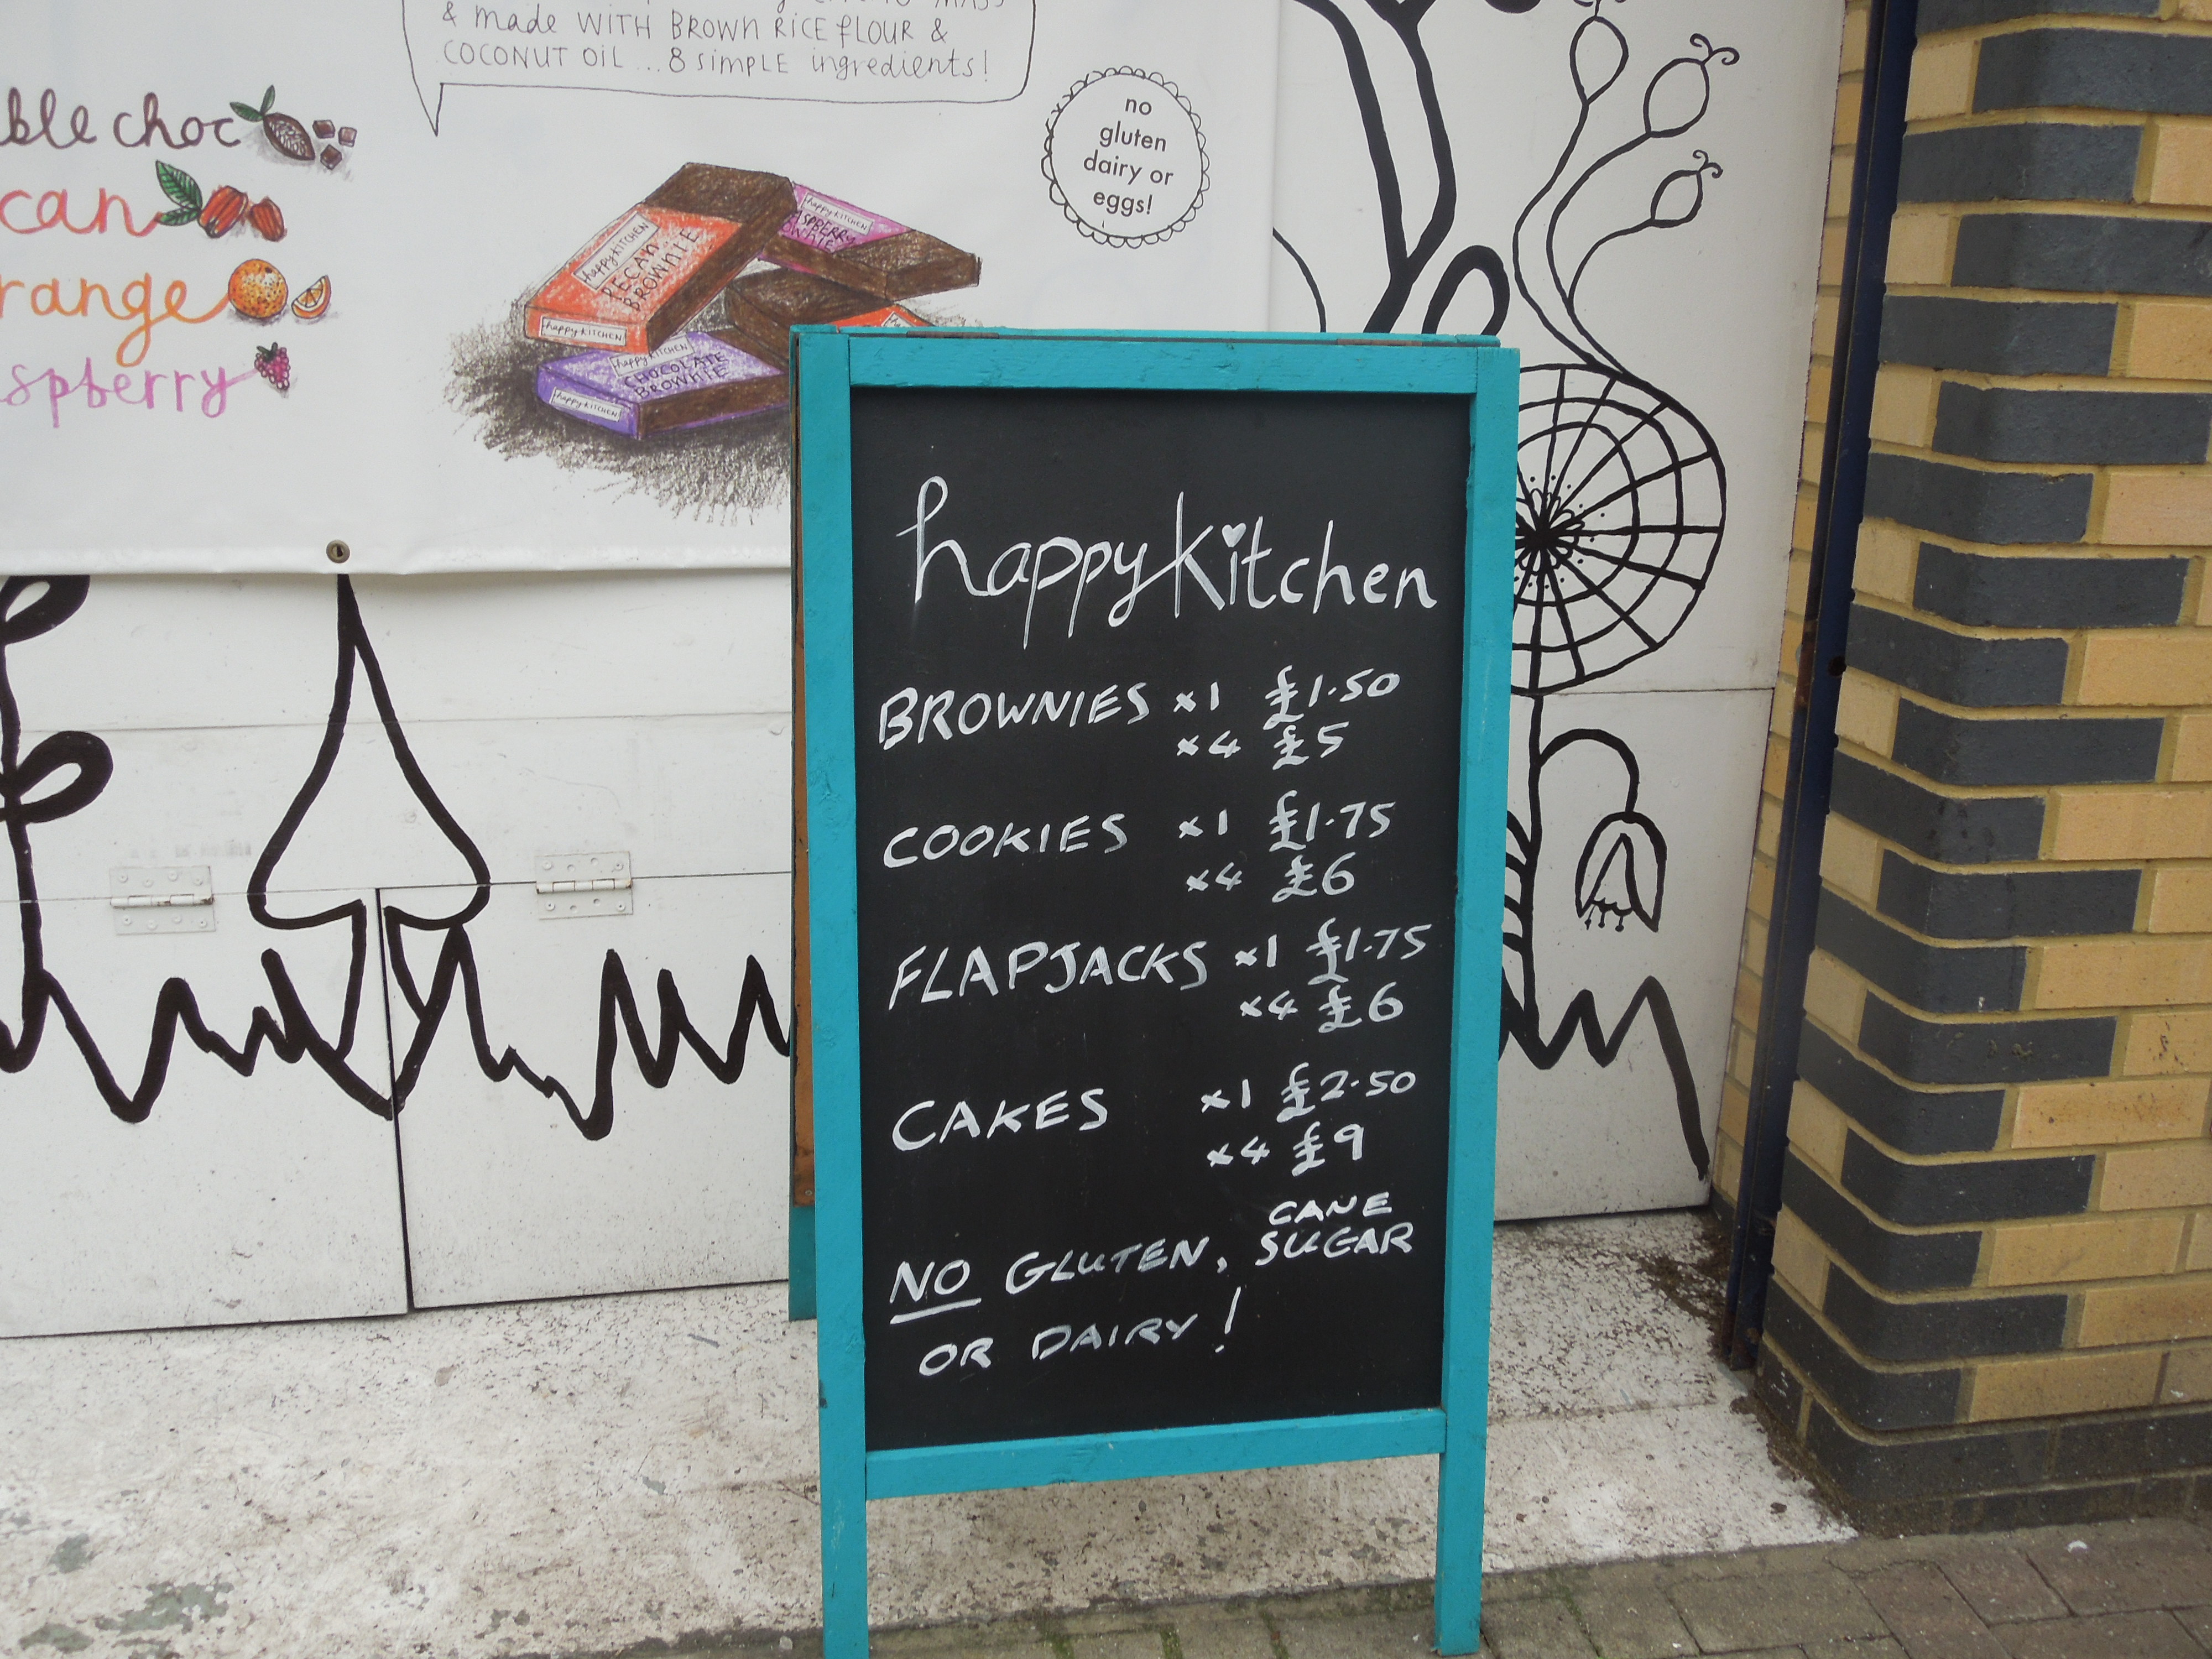 & made WITH BROWN RICE fLOUR &
COCONUT OIL ... 8 SIMPLE ingredients!
no
gluten
dairy or
eggs!
choc
happy KITCHEN
PECAN
BROWNIE
happy KITCHEN
happy KITCHEN
happy KITCHEN
CHOCOLATE
BROWNIE
happy KITCHEN
happykitchen
BROWNIES x1 £1.50
x4 £5
COOKIES x1 £1.75
x4 £6
FLAPJACKS x1 £1.75
x4 £6
CAKES x1 £2.50
x4 £9
NO GLUTEN, CANE SUGAR
OR DAIRY!